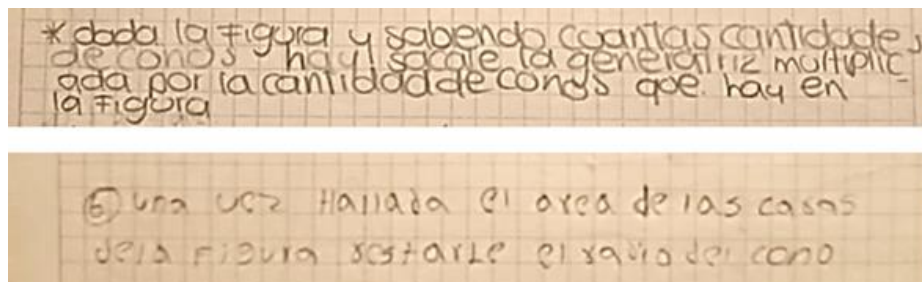 * dada la figura y sabendo cuantas cantidade s
de conos hay sacale la generatriz multiplic
ada por la cantidad de conos que. hay en
la figura
⑥ una vez Hallada el area de las casas
dela Figura restarle el radio del cono